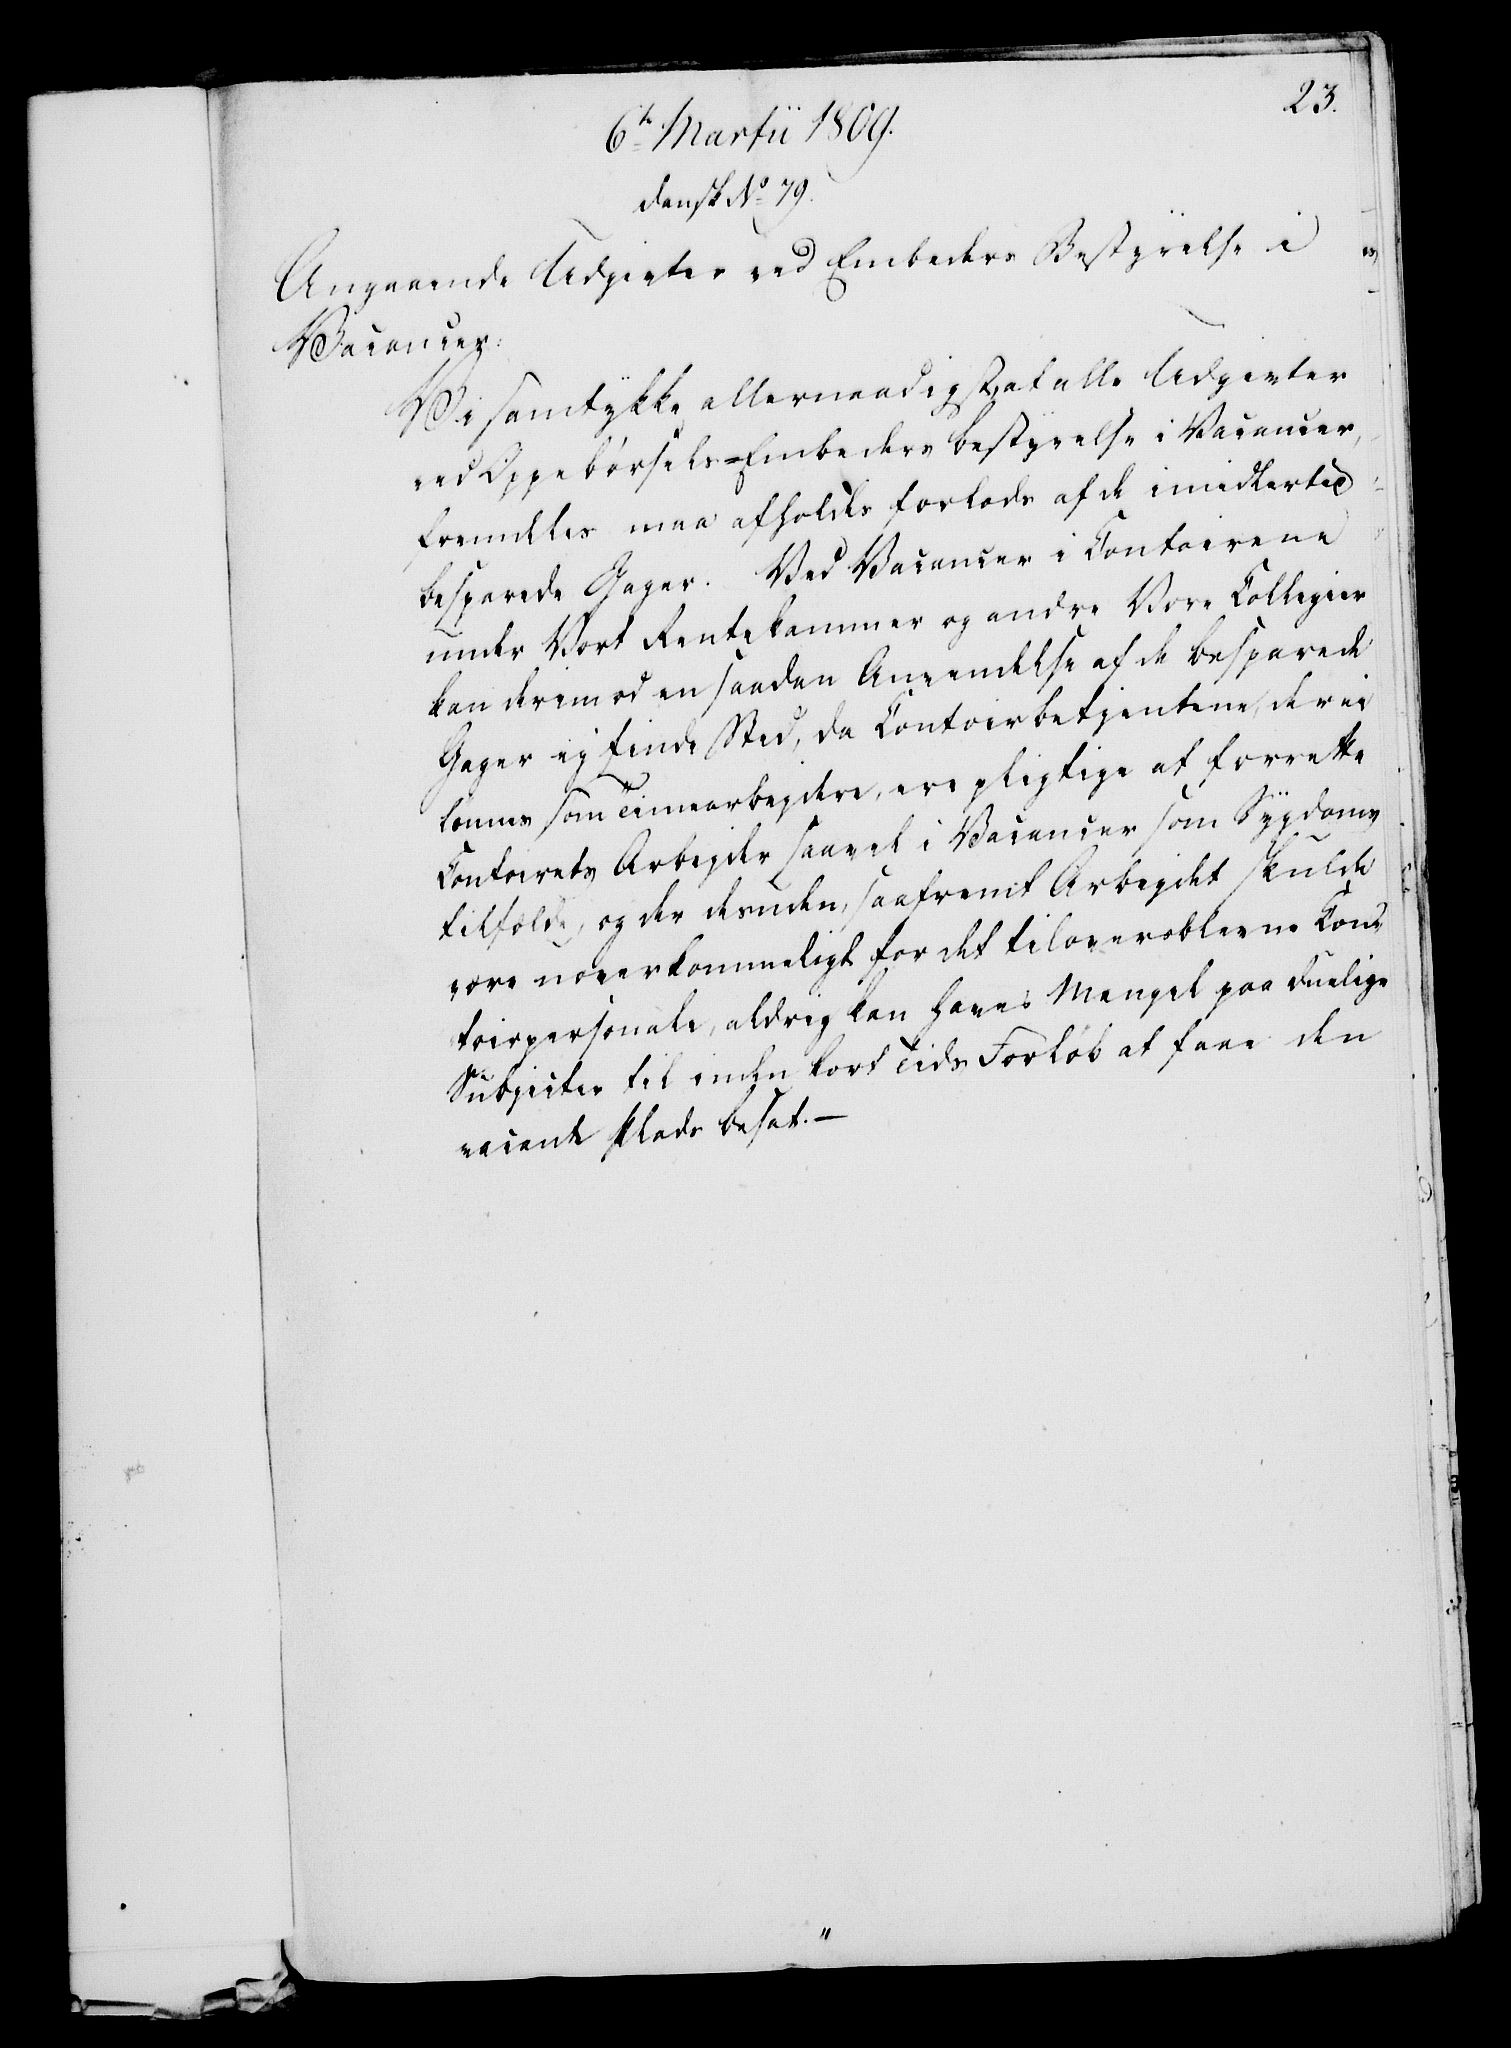 23.
6te Martii 1809.
dansk No 79.
Angaaende Udgivter ved Embeders Bestyrelse i
Vacancer:
Vi samtykke allernaadigst, at alle Udgivter
ved Oppebørsels-Embeders bestyrelse i Vacancer,
fremdeles maa afholdes forlods af de imidlertid
besparede Gager. Ved Vacancer i Contoirene
under Vort Rentekammer og andre Vore Collegier
kan derimod en saadan Anvendelse af de besparede
Gager ej finde Sted, da Contoirbetjentene, der ei
lønnes som Timearbejdere, ere pligtige at forrette
Contoirets Arbejder saavel i Vacancer som Sygdoms
tilfælde, og der desuden, saafremt Arbejdet skulde
være uoverkommeligt for det tiloversblevne Con-
toirpersonale, aldrig kan haves Mangel paa duelige
Subjecter til inden kort Tids Forløb at faae den
vacante Plads besat.—